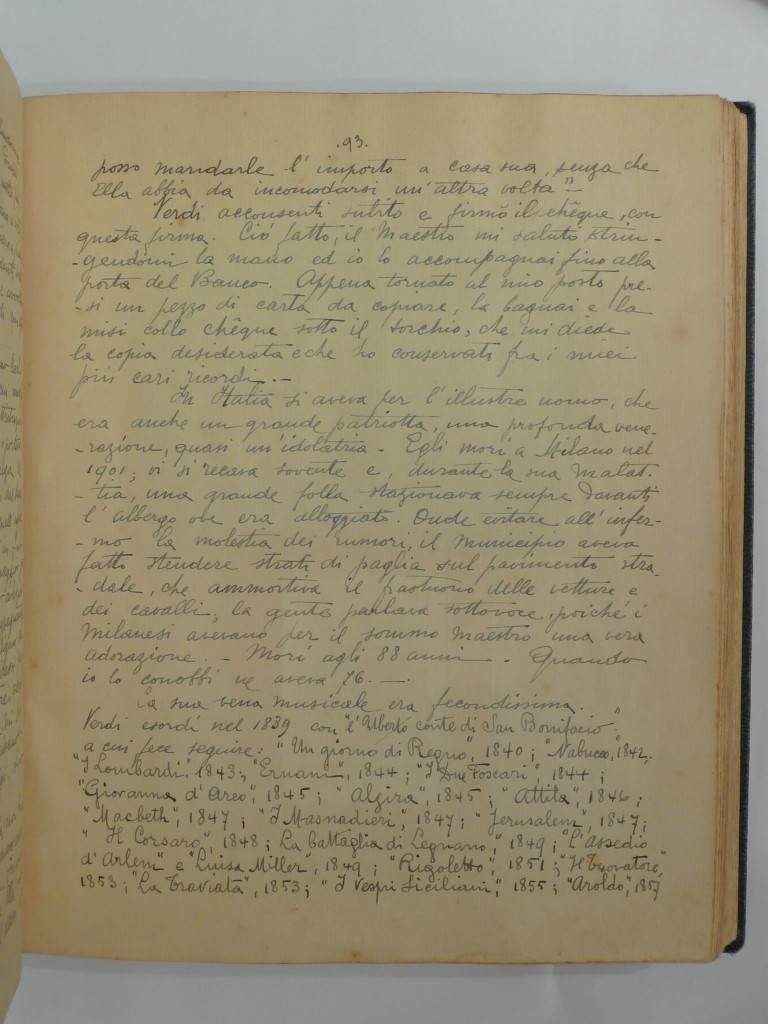 .93.
posso mandarle l'importo a casa sua, senza che
Ella abbia da incomodarsi un'altra volta"._
Verdi acconsentì subito e firmò il chêque, con
questa firma. Ciò fatto, il Maestro mi salutò strin-
-gendomi la mano ed io lo accompagnai fino alla
porta del Banco. Appena tornato al mio posto pre-
-si un pezzo di carta da copiare, la bagnai e la
misi collo chêque sotto il torchio, che mi diede
la copia desiderata e che ho conservati fra i miei
più cari ricordi. _
In Italia si aveva per l'illustre uomo, che
era anche un grande patriotta, una profonda vene-
-razione, quasi un'idolatria. Egli morì a Milano nel
1901; vi si recava sovente e, durante la sua malat-
-tia, una grande folla stazionava sempre davanti
l'albergo ove era alloggiato. Onde evitare all'infer-
-mo la molestia dei rumori, il Municipio aveva
fatto stendere strati di paglia sul pavimento stra-
-dale, che ammortiva il frastuono delle vetture e
dei cavalli; la gente parlava sottovoce, poiché i
Milanesi avevano per il sommo maestro una vera
adorazione. _ Morì agli 88 anni _. Quando
io lo conobbi ne aveva 76. _
La sua vena musicale era fecondissima.
Verdi esordì nel 1839 con "l'Uberto conte di San Bonifacio";
a cui fece seguire: "Un giorno di Regno", 1840; "Nabucco, 1842;
"I Lombardi", 1843; "Ernani", 1844; "I Due Foscari", 1844;
"Giovanna d'Arco", 1845; "Algira", 1845; "Attila", 1846;
"Macbeth", 1847; "I Masnadieri", 1847; "Jerusalem", 1847;
"Il Corsaro", 1848; La battaglia di Legnano", 1849; "l'Assedio
d'Arlem" e "Luisa Miller", 1849; "Rigoletto", 1851; "Il Trovatore",
1853; "La Traviata", 1853; "I Vespri Siciliani", 1855; "Aroldo", 1857